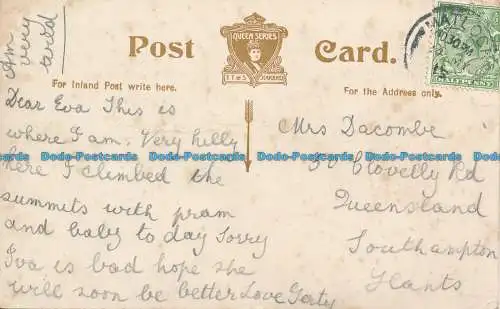 Am
very
tired
Post Card.
QUEEN SERIES
For Inland Post write here.
For the Address only.
MATLOCK
Dear Eva This is
where I am. Very hilly
here I climbed the
summits with pram
and baby to day Sorry
Iva is bad hope she
will soon be better Love Gerty
Mrs Dacombe
Clovelly Rd
Queensland
Southampton
Hants
Dodo-Postcards Dodo-Postcards Dodo-Postcards Dodo-Postcards